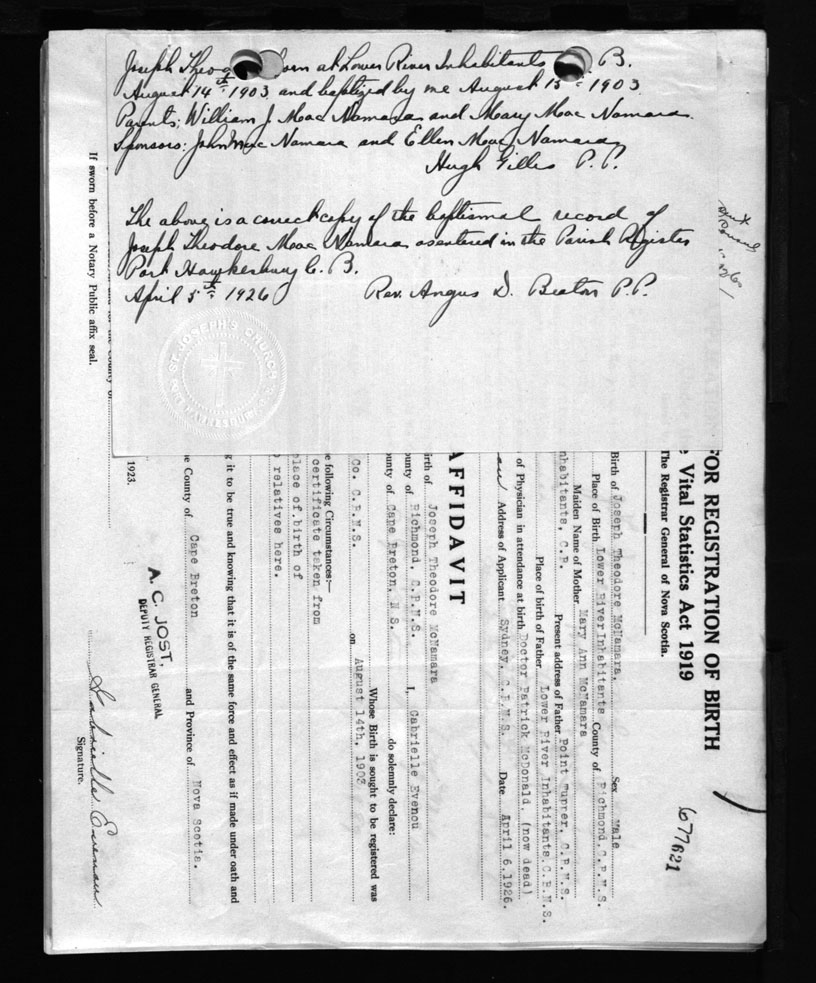 Joseph Theo born at Lower River Inhabitants B.
August 14th 1903 and baptized by me August 15th 1903
Parents; William J. Mac Namara and Mary Mac Namara.
Sponsors: John Mac Namara and Ellen Mac Namara
Hugh Gillis P. P.
The above is a correct copy of the baptismal record of
Joseph Theodore Mac Namara as entered in the Parish Register
Port Hawkesbury C. B.
April 5th 1926 Rev. Angus D. Beaton P.P.
ST. JOSEPH'S CHURCH
FOR REGISTRATION OF BIRTH
Vital Statistics Act 1919
The Registrar General of Nova Scotia.
677621
Birth of Joseph Theodore McNamara. Sex Male
Place of Birth Lower River Inhabitants County of Richmond, C.B.N.S.
Maiden Name of Mother Mary Ann McNamara
nhabitants, C.B. Present address of Father Point Tupper, C.B.N.S.
Place of birth of Father Lower River Inhabitants, C.B.N.S.
of Physician in attendance at birth Doctor Patrick McDonald, (now dead)
Address of Applicant Sydney, C.B.N.S. Date April 6, 1926.
AFFIDAVIT
irth of Joseph Theodore McNamara
ounty of Richmond, C.B.N.S. I, Gabrielle Evenou
ounty of Cape Breton, N S. do solemnly declare:
Whose Birth is sought to be registered was
Co. C.B.N.S. on August 14th, 1903
e following Circumstances:—
certificate taken from
lace of birth of
relatives here.
g it to be true and knowing that it is of the same force and effect as if made under oath and
e County of Cape Breton and Province of Nova Scotia.
A. C. JOST,
DEPUTY REGISTRAR GENERAL
1923.
Gabrielle Evenou
Signature.
If sworn before a Notary Public affix seal.